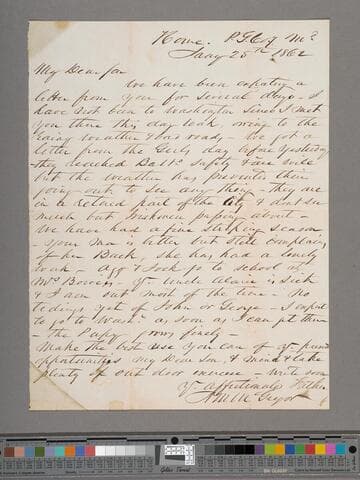 Home. P.G.Co Md
Jany 25th 1862
My Dear Son
We have been expecting a
letter from you for several days. I
have not been to Washington since I met
you there this day week owing to the
rainy weather & bad roads - We got a
letter from the Girls day before yesterday
they reached Balto safely & are well
but the weather has prevented their
going out to see any thing - they are
in a retired part of the City & don't see
much but workmen passing about -
We have had a fine sleeping season
- your Ma is better but still complains
of her Back, she has had a lonely
week - & Jack go to school at
Mrs Bowens - yr Uncle is sick
& I am out most of the time - No
tidings yet of John or George - I expect
to go to Washn as soon as I can get there
- the grows finely -
Make the best use you can of yr present
opportunities my Dear Son, & mind & take
plenty of out door exercise - write soon
yr affectionate Father